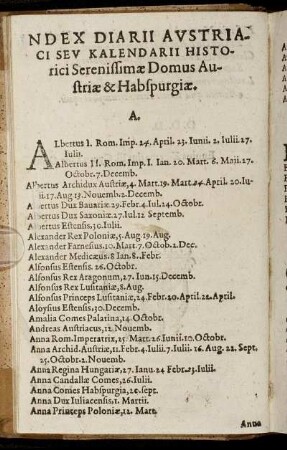 NDEX DIARII AVSTRIA-
CI SEV KALENDARII HISTO-
rici Serenissimæ Domus Au-
striæ & Habspurgiæ.
A.
ALbertus I. Rom. Imp. 24. April. 23. Iunii. 2. Iulii. 27.
Iulii.
Albertus II. Rom. Imp. I. Ian. 20. Mart. 6. Maii. 27.
Octob. 7. Decemb.
Albertus Archidux Austriæ, 4. Mart. 19. Mart. 24. April. 20. Iu-
nii. 17. Aug. 19. Nouemb. 2. Decemb.
Albertus Dux Bauariæ 29. Febr. 4. Iul. 24. Octobr.
Albertus Dux Saxoniæ. 27. Iul. 12 Septemb.
Albertus Estensis. 30. Iulii.
Alexander Rex Poloniæ, 5. Aug. 19. Aug.
Alexander Farnesius. 10. Mart. 7. Octob. 2. Dec.
Alexander Medicæus. 8 Ian. 8. Febr.
Alfonsus Estensis. 26. Octobr.
Alfonsus Rex Aragonum, 27. Iun. 15. Decemb.
Alfonsus Rex Lusitaniæ, 8. Aug.
Alfonsus Princeps Lusitaniæ, 24. Febr. 20. April. 22. April.
Aloysius Estensis, 30. Decemb.
Amalia Comes Palatina, 14. Octobr.
Andreas Austriacus, 12. Nouemb.
Anna Rom. Imperatrix, 25. Mart. 26. Iunii. 10. Octobr.
Anna Archid. Austriæ, 11. Febr. 4. Iulii. 7. Iulii. 16. Aug. 22. Sept.
25. Octobr. 2. Nouemb.
Anna Regina Hungariæ, 27. Ianu. 24 Febr. 23. Iulii.
Anna Candallæ Comes, 26. Iulii.
Anna Comes Habspurgia, 20. sept.
Anna Dux Iuliacensis, 1. Martii.
Anna Princeps Poloniæ, 12. Mart.
Anna